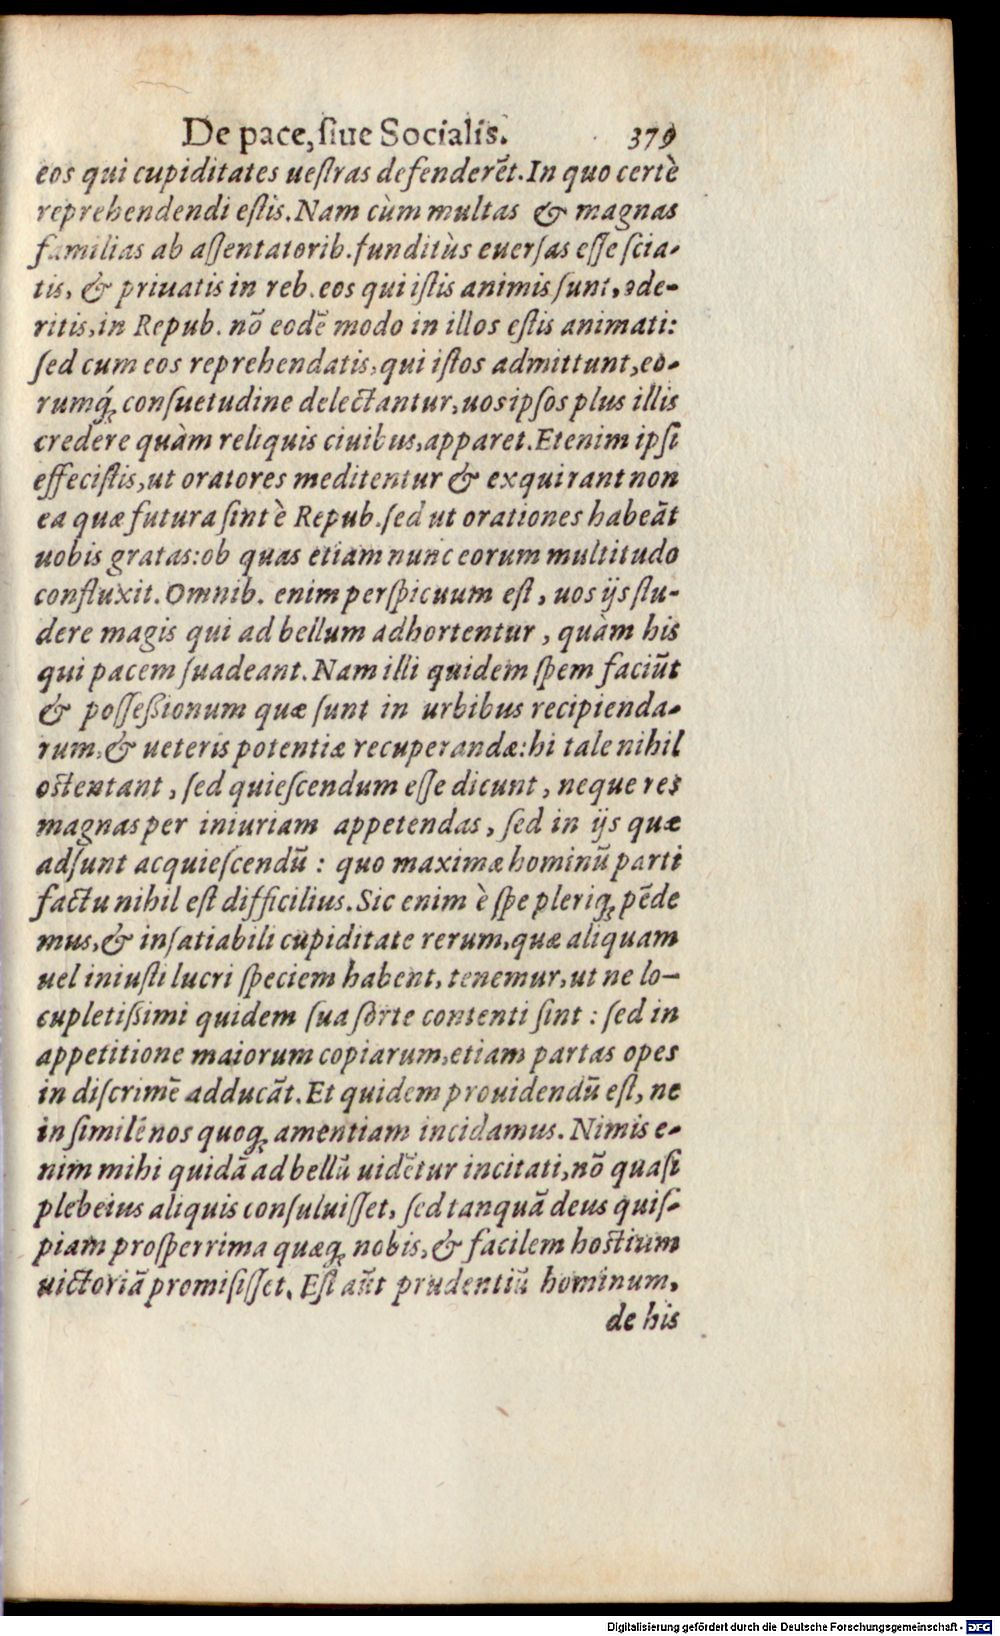 De pace, ſiue Socialis. 379
eos qui cupiditates ueſtras defenderẽt. In quo certè
reprehendendi eſtis. Nam cùm multas & magnas
familias ab aſſentatorib. funditùs euerſas eſſe ſcia-
tis, & priuatis in reb. eos qui iſtis animis ſunt, ode-
ritis, in Repub. nõ eodẽ modo in illos eſtis animati:
ſed cum eos reprehendatis, qui iſtos admittunt, eo-
rumq́ꝫ conſuetudine delectantur, uos ipſos plus illis
credere quàm reliquis ciuibus, apparet. Etenim ipſi
effeciſtis, ut oratores meditentur & exquirant non
ea quæ futura ſint è Repub. ſed ut orationes habeãt
uobis gratas: ob quas etiam nunc eorum multitudo
confluxit. Omnib. enim perſpicuum eſt, uos ijs ſtu-
dere magis qui ad bellum adhortentur, quàm his
qui pacem ſuadeant. Nam illi quidem ſpem faciũt
& poſſeßionum quæ ſunt in urbibus recipienda-
rum, & ueteris potentiæ recuperandæ: hi tale nihil
oſtentant, ſed quieſcendum eſſe dicunt, neque res
magnas per iniuriam appetendas, ſed in ijs quæ
adſunt acquieſcendũ: quo maximæ hominũ parti
factu nihil eſt difficilius. Sic enim è ſpe pleriqꝫ pẽde
mus, & inſatiabili cupiditate rerum, quæ aliquam
uel iniuſti lucri ſpeciem habent, tenemur, ut ne lo-
cupletißimi quidem ſua ſorte contenti ſint: ſed in
appetitione maiorum copiarum, etiam partas opes
in diſcrimẽ adducãt. Et quidem prouidendũ eſt, ne
in ſimilẽ nos quoqꝫ amentiam incidamus. Nimis e-
nim mihi quidã ad bellũ uidẽtur incitati, nõ quaſi
plebeius aliquis conſuluiſſet, ſed tanquã deus quiſ-
piam proſperrima quæqꝫ nobis, & facilem hoſtium
uictoriã promiſiſſet. Eſt aũt prudentiũ hominum,
de his
Digitalisierung gefördert durch die Deutsche Forschungsgemeinschaft - DFG